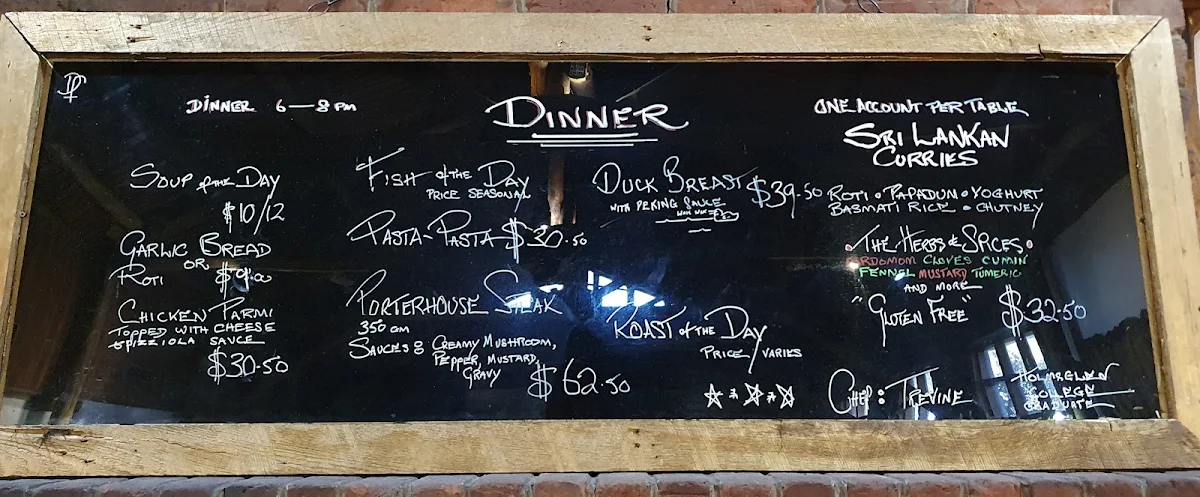 DINNER 6—8 PM
DINNER
ONE ACCOUNT PER TABLE
SOUP of the DAY
$10/12
GARLIC BREAD
OR
ROTI $9.00
CHICKEN PARMI
TOPPED WITH CHEESE
& PIZZIOLA SAUCE
$30.50
FISH of the DAY
PRICE SEASONAL
PASTA-PASTA $30.50
PORTERHOUSE STEAK
350 GM
SAUCES: CREAMY MUSHROOM,
PEPPER, MUSTARD,
GRAVY
$62.50
DUCK BREAST $39.50
WITH PEKING SAUCE
ROAST of the DAY
PRICE VARIES
SRI LANKAN
CURRIES
ROTI • PAPADUM • YOGHURT
BASMATI RICE • CHUTNEY
• THE HERBS & SPICES •
CLOVES CUMIN
FENNEL MUSTARD TUMERIC
AND MORE
"GLUTEN FREE" $32.50
CHEF: TREVINE
HOLMSGLEN
COLLEGE
GRADUATE